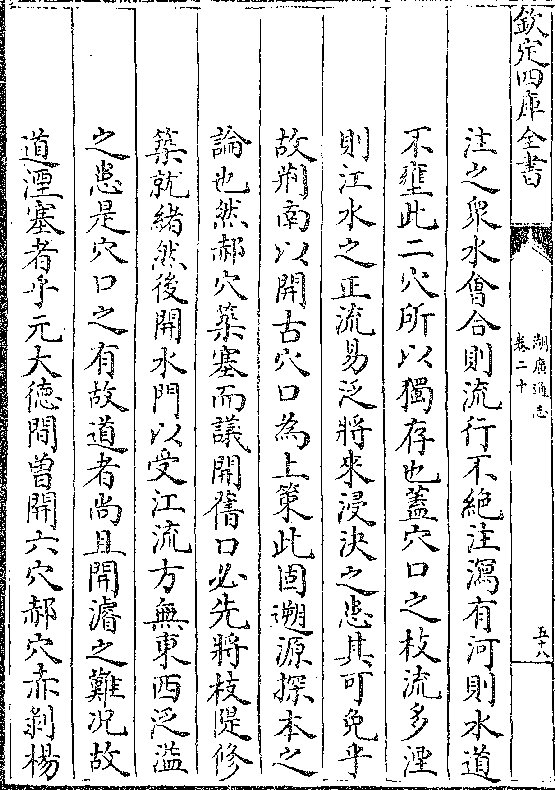 欽定四庫全書
湖廣通志
卷二十
五十八
注之衆水會合則流行不絶注瀉有河則水道
不壅此二穴所以獨存也蓋穴口之枝流多湮
則江水之正流易泛將來浸決之患其可免乎
故荆南以開古穴口為上策此固遡源探本之
論也然郝穴築塞而議開舊口必先將枝隄修
築就緒然後開水門以受江流方無東西泛濫
之患是穴口之有故道者尚且開濬之難况故
道湮塞者乎元大德間曾開六穴郝穴赤剥楊